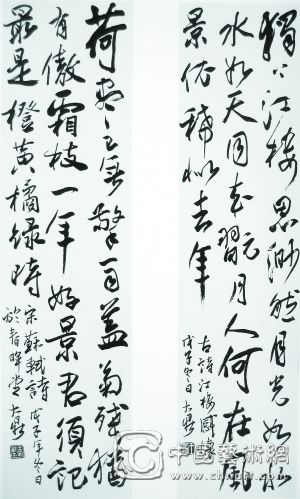 獨上江樓思渺然月光如水
水如天同來翫月人何在風
景依稀似去年
古詩江樓感舊
戊子冬日大鼎
荷盡已無擎雨蓋菊殘猶
有傲霜枝一年好景君須記
最是橙黃橘綠時
宋蘇軾詩戊子年冬日
於春暉堂大鼎
中國藝術網